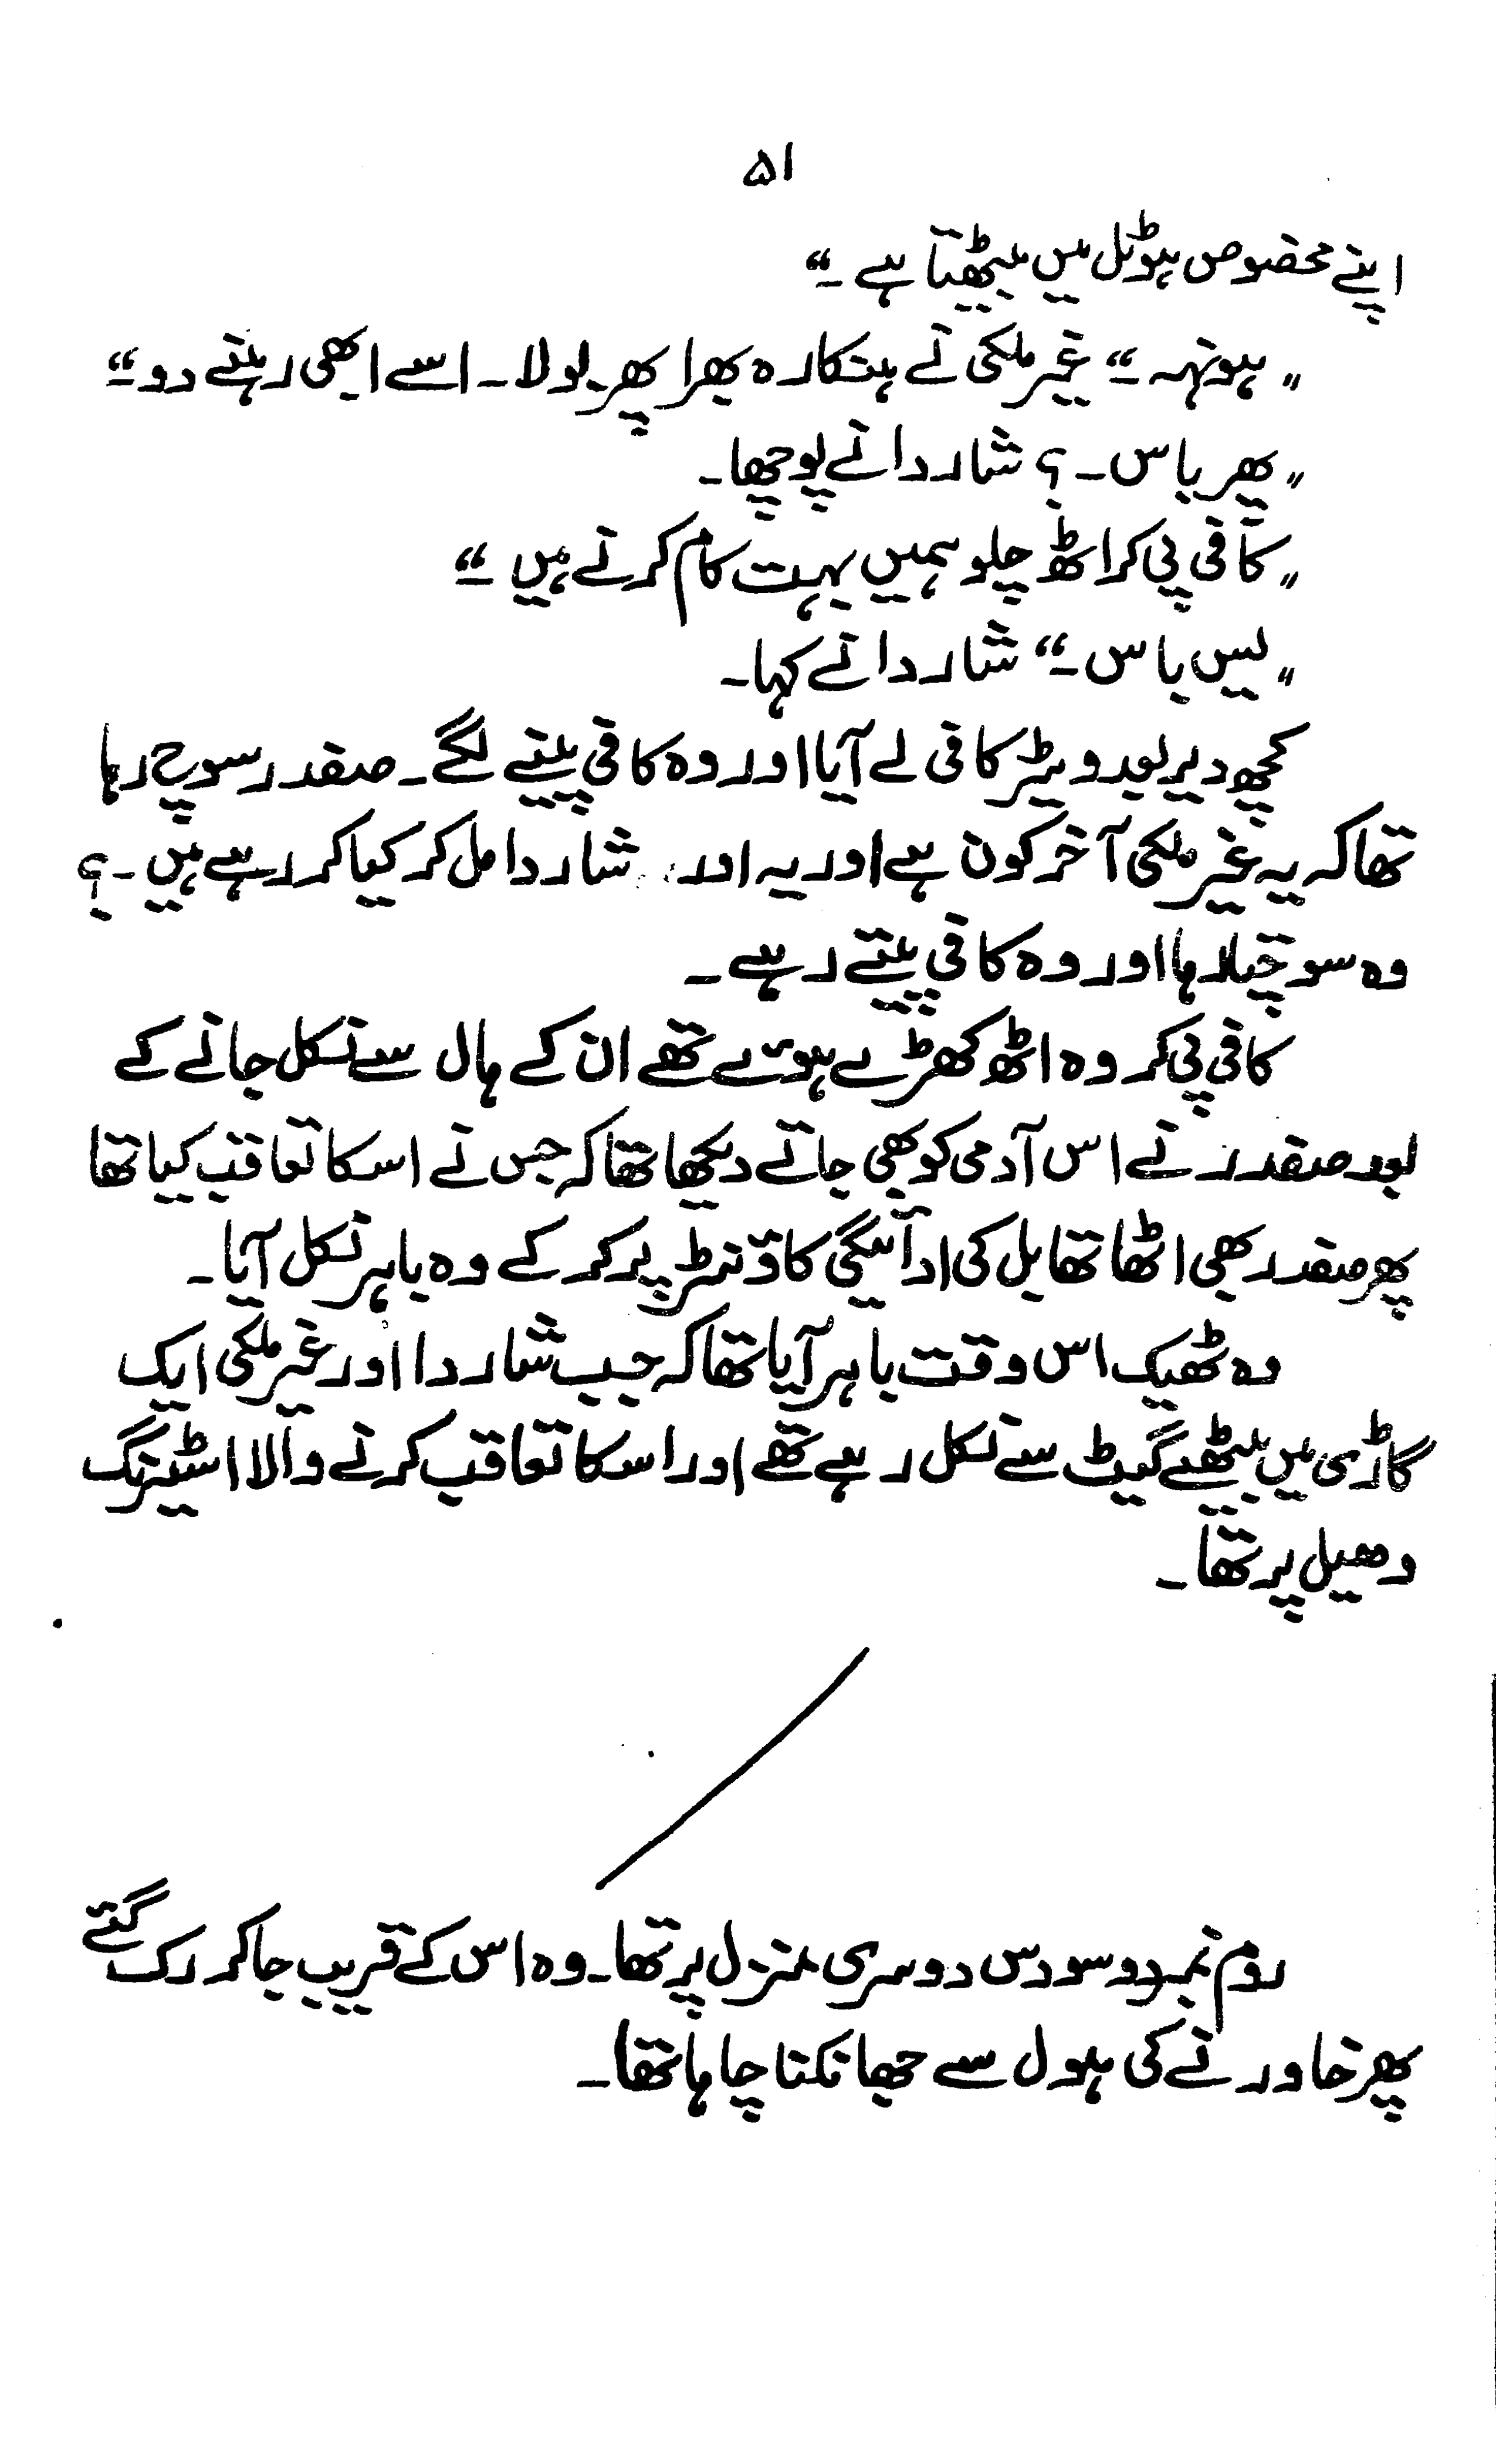 ۵۱
اپنے مخصوص ہوٹل میں بیٹھتا ہے۔“
”ہونہہ۔“ غیر ملکی نے ہنکارہ بھرا پھر بولا۔ اسے ابھی رہنے دو“
”پھر باس۔؟ شاردا نے پوچھا۔
”کافی پی کر اٹھ چلو ہمیں بہت کام کرنے ہیں“
”یس باس۔“ شاردا نے کہا۔
کچھ دیر بعد ویٹر کافی لے آیا اور وہ کافی پینے لگے۔ صفدر سوچ رہا
تھا کہ یہ غیر ملکی آخر کون ہے اور یہ اور شاردا مل کر کیا کر رہے ہیں۔؟
وہ سوچتا رہا اور وہ کافی پیتے رہے۔
کافی پی کر وہ اٹھ کھڑے ہوئے تھے ان کے ہال سے نکل جانے کے
بعد صفدر نے اس آدمی کو بھی جاتے دیکھا تھا کہ جس نے اسکا تعاقب کیا تھا
پھر صفدر بھی اٹھا تھا بل کی ادائیگی کاؤنٹر پر کر کے وہ باہر نکل آیا۔
وہ ٹھیک اس وقت باہر آیا تھا کہ جب شاردا اور غیر ملکی ایک
گاڑی میں بیٹھے گیٹ سے نکل رہے تھے اور اسکا تعاقب کرنے والا اسٹیرنگ
وھیل پر تھا۔
روم نمبر دو سو دس دوسری منزل پر تھا۔ وہ اس کے قریب جا کر رک گئے
پھر خاور نے کی ہول سے جھانکنا چاہا تھا۔